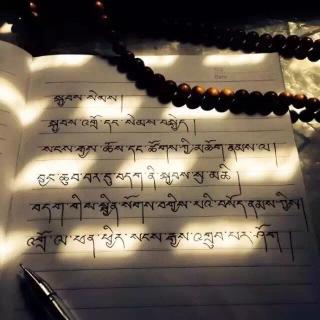 སྐྱབས་སེམས།
སྐྱབས་འགྲོ་དང་སེམས་བསྐྱེད།
སངས་རྒྱས་ཆོས་དང་ཚོགས་ཀྱི་མཆོག་རྣམས་ལ།
བྱང་ཆུབ་བར་དུ་བདག་ནི་སྐྱབས་སུ་མཆི།
བདག་གིས་སྦྱིན་སོགས་བགྱིས་པའི་བསོད་ནམས་ཀྱིས།
འགྲོ་ལ་ཕན་ཕྱིར་སངས་རྒྱས་འགྲུབ་པར་ཤོག།